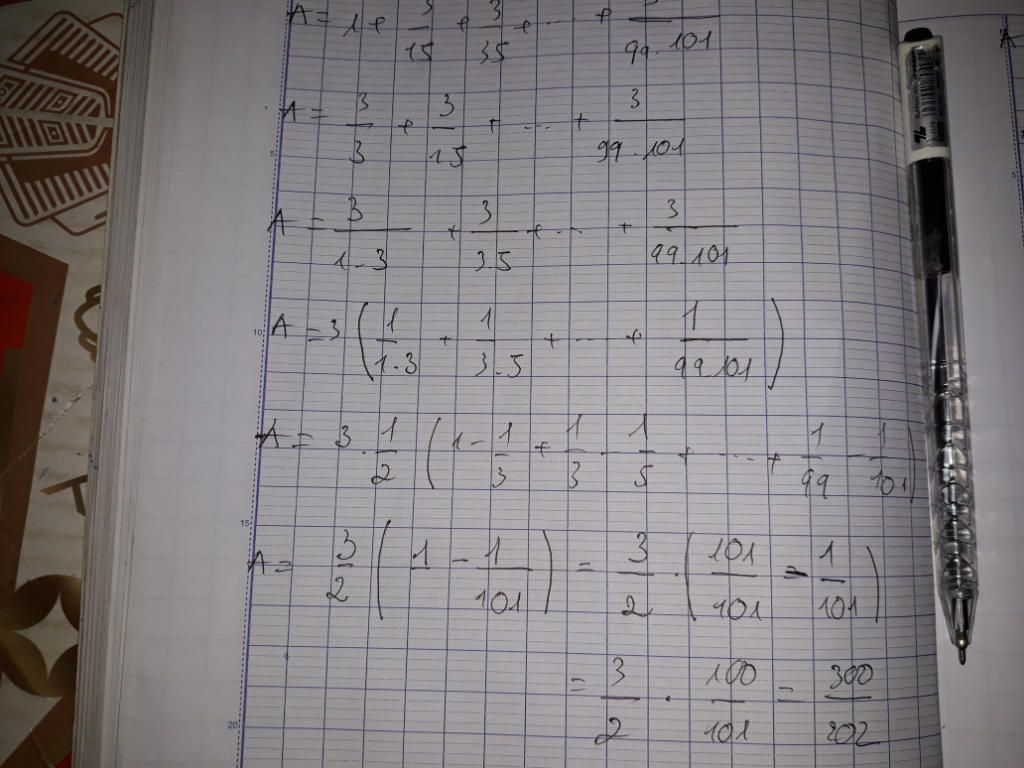 A = 1 + 3/15 + 3/35 + ... + 3/99.101
A = 3/3 + 3/15 + ... + 3/99.101
5
A = 3/1.3 + 3/3.5 + ... + 3/99.101
10
A = 3 (1/1.3 + 1/3.5 + ... + 1/99.101)
A = 3 . 1/2 (1 - 1/3 + 1/3 - 1/5 + ... + 1/99 - 1/101)
15
A = 3/2 (1 - 1/101) = 3/2 . (101/101 - 1/101)
= 3/2 . 100/101 = 300/202
20